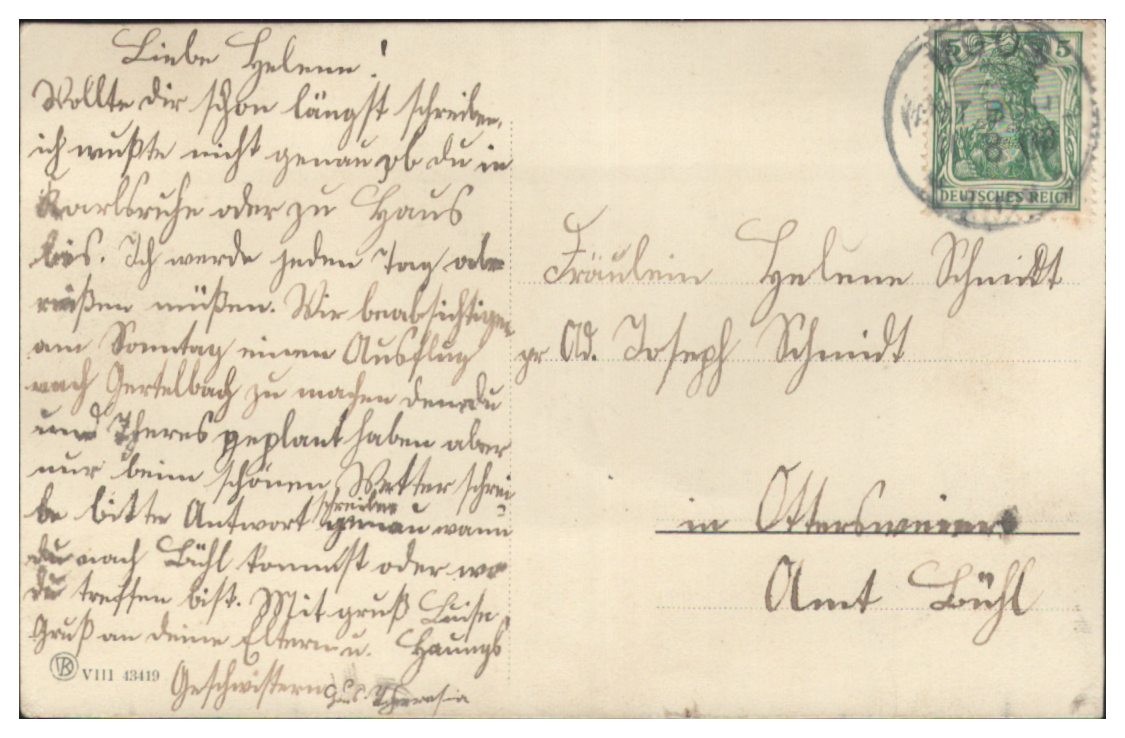 Liebe Helene!
Wollte dir schon längst schreiben,
ich wußte nicht genau ob du in
Karlsruhe oder zu Haus
bis. Ich werde jeden Tag
müßen. Wir beabsichtigen
am Sonntag einen Ausflug
nach Gertelbach zu machen den du
und Theres geplant haben aber
nur beim schönen Wetter schrei
be bitte Antwort schreibe genau wann
du nach Bühl kommst oder wo
du treffen bist. Mit gruß Luise
Gruß an deine Eltern u.
Geschwistern Theresia
VK VIII 43419
5 5
DEUTSCHES REICH
Fräulein Helene Schmidt
pr Ad. Joseph Schmidt
in Ottersweier
Amt Bühl